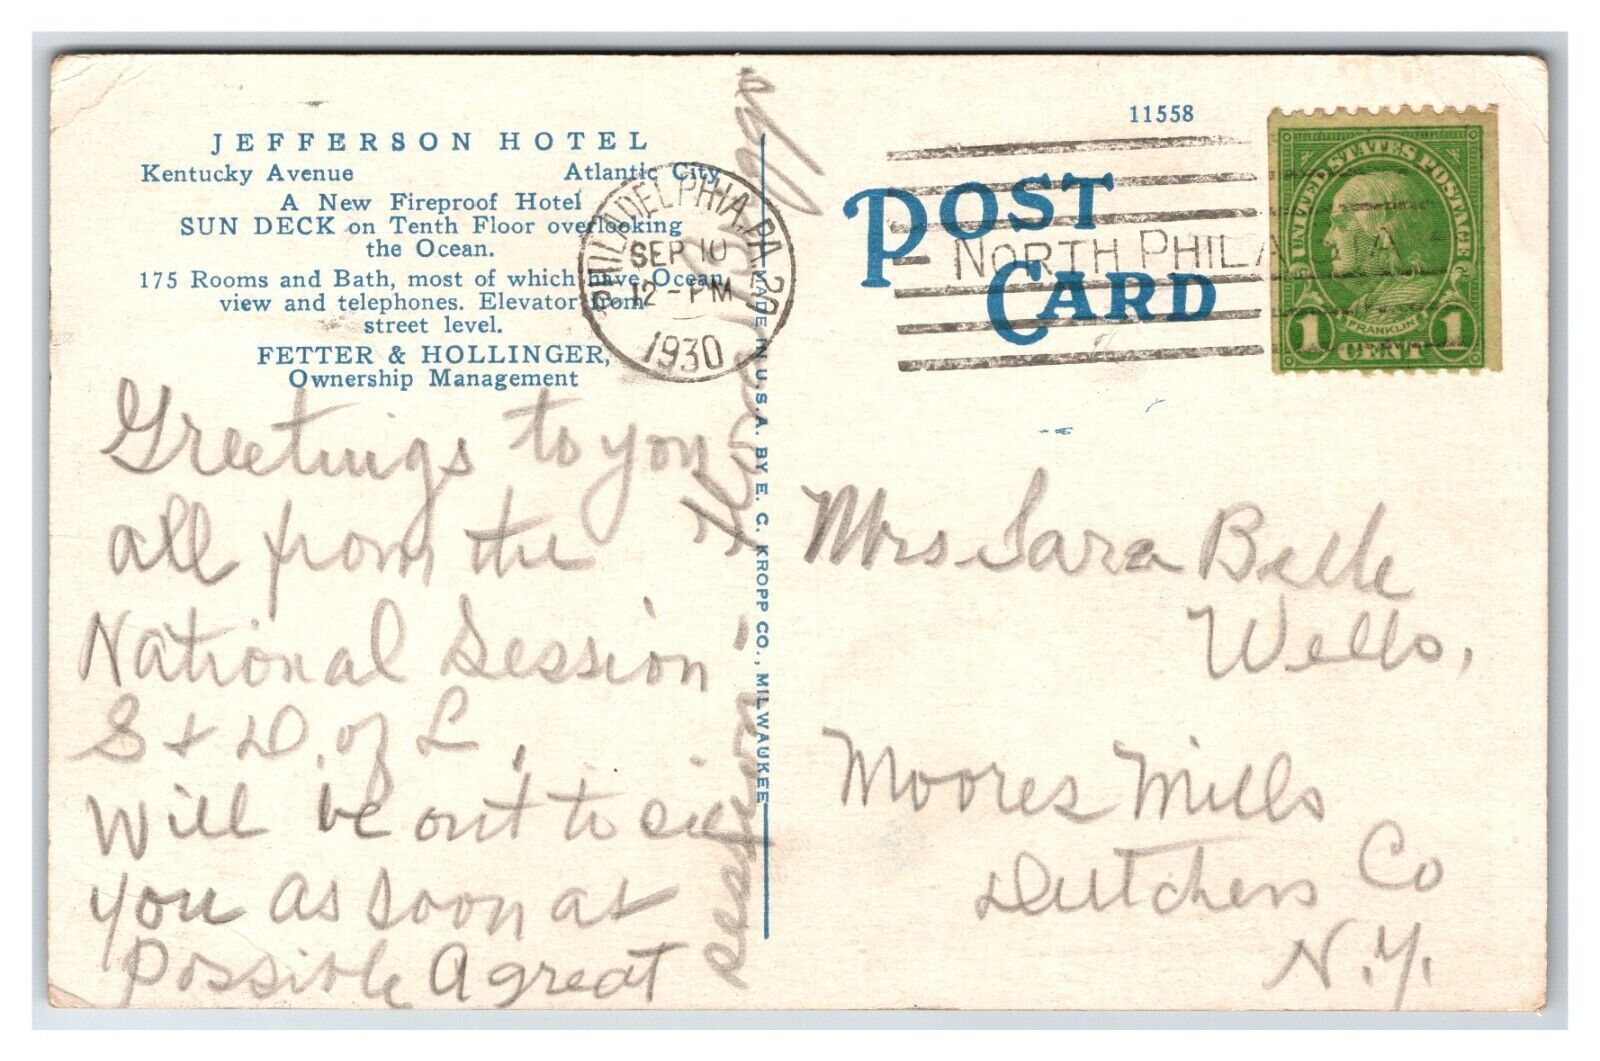 JEFFERSON HOTEL
Kentucky Avenue Atlantic City
A New Fireproof Hotel
SUN DECK on Tenth Floor overlooking
the Ocean.
175 Rooms and Bath, most of which have Ocean
view and telephones. Elevator from
street level.
FETTER & HOLLINGER,
Ownership Management
Greetings to you
all from the
National Session
S & D. of L.
Will be out to see
you as soon as
Possible A great
session
MADE IN U.S.A. BY E. C. KROPP CO., MILWAUKEE
PHILADELPHIA, PA. 20
SEP 10
12 - PM
1930
11558
POST
CARD
NORTH PHILA
UNITED STATES POSTAGE
FRANKLIN
1 CENT 1
Mrs Sara Belle
Wells,
Moores Mills
Dutchess Co
N.Y.